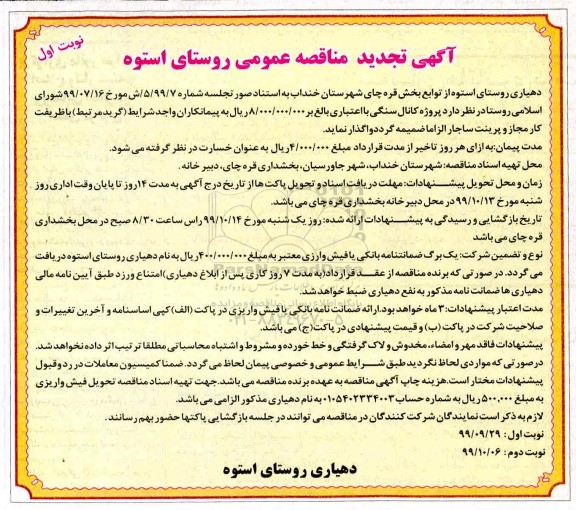 نوبت اول
آگهی تجدید مناقصه عمومی روستای استوه
دهیاری روستای استوه از توابع بخش قره چای شهرستان خنداب به استناد صورتجلسه شماره ۵/۹۹/۷/ش مورخ ۹۹/۰۷/۱۶ شورای
اسلامی روستا در نظر دارد پروژه کانال سنگی با اعتباری بالغ بر ۸/۰۰۰/۰۰۰/۰۰۰ ریال به پیمانکاران واجد شرایط (گرید مرتبط) با ظرفیت
کار مجاز و پرینت ساجار الزاما ضمیمه گردد واگذار نماید.
مدت پیمان: به ازای هر روز تاخیر از مدت قرارداد مبلغ ۴/۰۰۰/۰۰۰ ریال به عنوان خسارت در نظر گرفته می شود.
محل تهیه اسناد مناقصه: شهرستان خنداب، شهر جاورسیان، بخشداری قره چای، دبیرخانه.
زمان و محل تحویل پیشنهادات: مهلت دریافت اسناد و تحویل پاکت ها از تاریخ درج آگهی به مدت ۱۴ روز تا پایان وقت اداری روز
شنبه مورخ ۹۹/۱۰/۱۳ در محل دبیرخانه بخشداری قره چای می باشد.
تاریخ بازگشایی و رسیدگی به پیشنهادات ارائه شده: روز یک شنبه مورخ ۹۹/۱۰/۱۴ راس ساعت ۸/۳۰ صبح در محل بخشداری
قره چای می باشد
نوع و تضمین شرکت: یک برگ ضمانتنامه بانکی یا فیش واریزی معتبر به مبلغ ۴۰۰/۰۰۰/۰۰۰ ریال به نام دهیاری روستای استوه دریافت
می گردد. در صورتی که برنده مناقصه از عقد قرارداد (به مدت ۷ روز کاری پس از ابلاغ دهیاری) امتناع ورزد طبق آیین نامه مالی
دهیاری ها ضمانت نامه مذکور به نفع دهیاری ضبط خواهد شد.
مدت اعتبار پیشنهادات: ۳ ماه خواهد بود. ارائه ضمانت نامه بانکی یا فیش واریزی در پاکت (الف) کپی اساسنامه و آخرین تغییرات و
صلاحیت شرکت در پاکت (ب) و قیمت پیشنهادی در پاکت (ج) می باشد.
پیشنهادات فاقد مهر و امضاء، مخدوش و لاک گرفتگی و خط خورده و مشروط و اشتباه محاسباتی مطلقا ترتیب اثر داده نخواهد شد.
در صورتی که مواردی لحاظ نگردید طبق شرایط عمومی و خصوصی پیمان لحاظ می گردد. ضمنا کمیسیون معاملات در رد و قبول
پیشنهادات مختار است. هزینه چاپ آگهی مناقصه به عهده برنده مناقصه می باشد. جهت تهیه اسناد مناقصه تحویل فیش واریزی
به مبلغ ۵۰۰,۰۰۰ ریال به شماره حساب ۰۱۰۵۴۰۲۳۳۴۰۰۳ به نام دهیاری مذکور الزامی می باشد.
لازم به ذکر است نمایندگان شرکت کنندگان در مناقصه می توانند در جلسه بازگشایی پاکتها حضور بهم رسانند.
نوبت اول: ۹۹/۰۹/۲۹
نوبت دوم: ۹۹/۱۰/۰۶
دهیاری روستای استوه